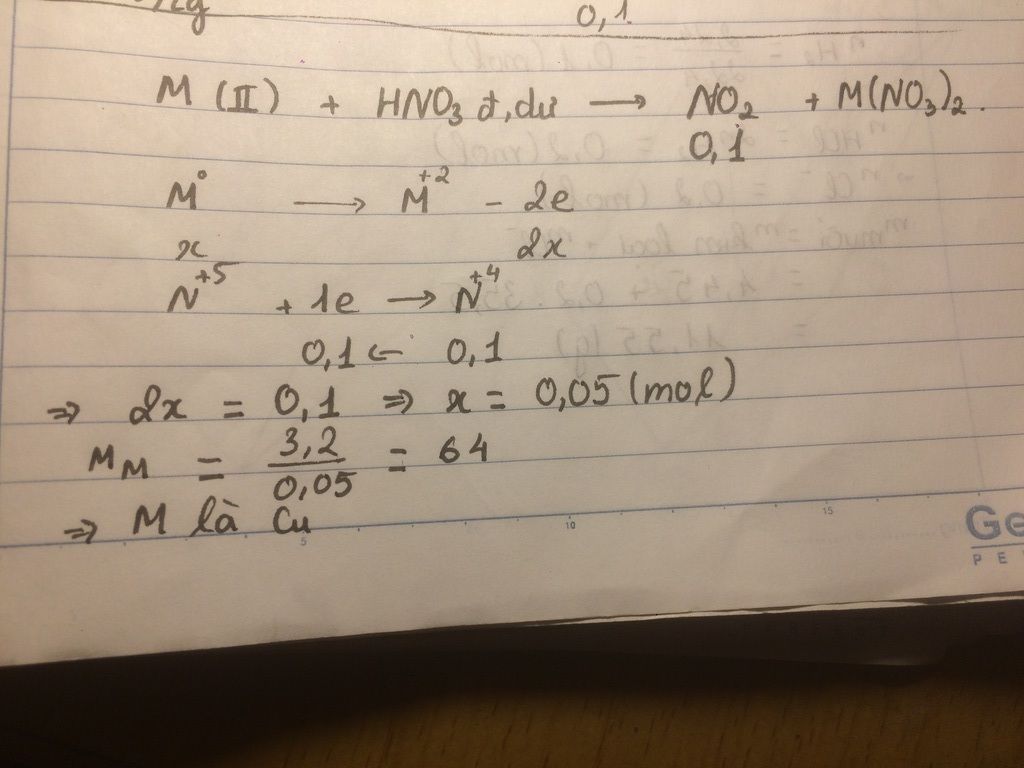 0,1
M (II) + HNO₃ đ, dư → NO₂ + M(NO₃)₂.
0,1
M⁰ → M⁺² - 2e
x 2x
N⁺⁵ + 1e → N⁺⁴
0,1 ← 0,1
⇒ 2x = 0,1 ⇒ x = 0,05 (mol)
M_M = 3,2/0,05 = 64
⇒ M là Cu
5 10 15
Ge
PE